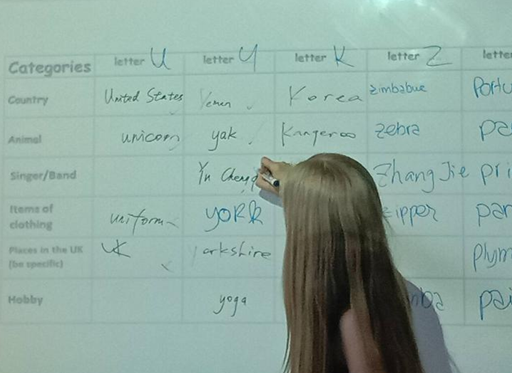 Categories letter U letter Y letter K letter Z letter
Country United States Yemen Korea zimbabue
Animal unicorn yak Kangeroo zebra
Singer/Band Zhang Jie pri
Items of
clothing uniform york ipper
Places in the UK
(be specific) UK orkshire Plym
Hobby yoga